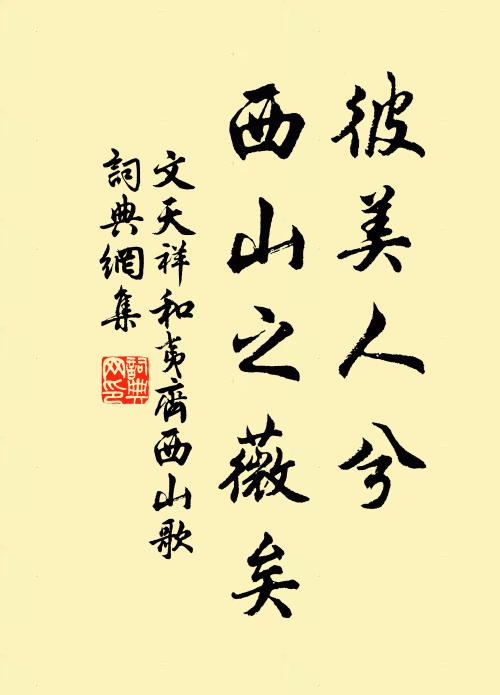 彼美人兮
西山之薇矣
文天祥和夷齊西山歌
詞典網集
詞典網印